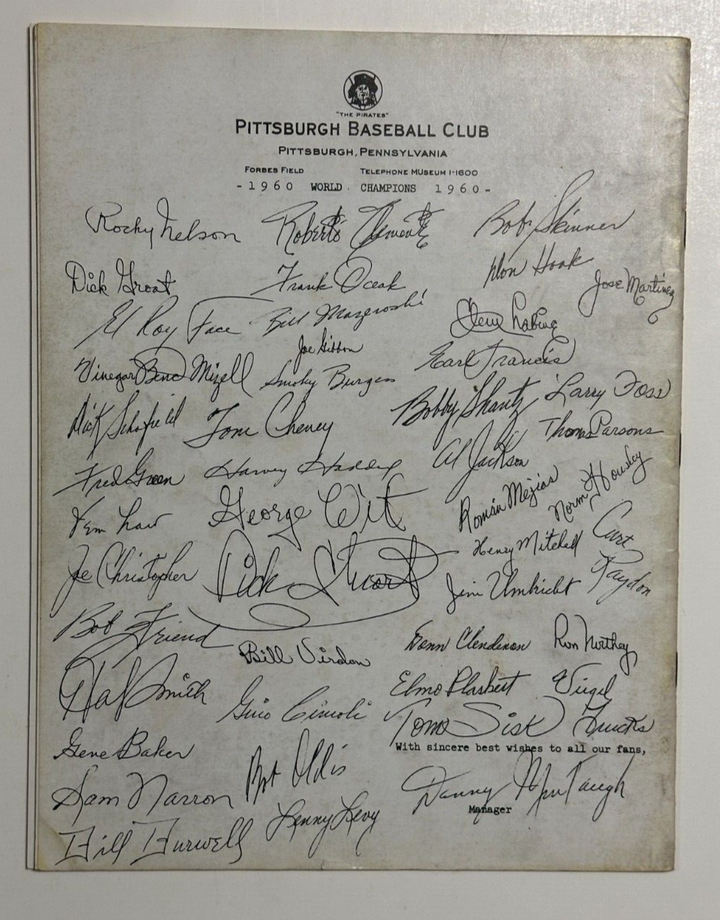 "THE PIRATES"
PITTSBURGH BASEBALL CLUB
PITTSBURGH, PENNSYLVANIA
FORBES FIELD TELEPHONE MUSEUM 1-1600
-1960 WORLD CHAMPIONS 1960-
Rocky Nelson Roberto Clemente Bob Skinner
Dick Groat Frank Oceak Don Hoak Jose Martinez
El Roy Face Bill Mazeroski Clem Labine
Joe Gibbon
Vinegar Bend Mizell Smoky Burgess Earl Francis
Dick Schofield Tom Cheney Bobby Shantz Larry Foss
Al Jackson Thomas Parsons
Fred Green Harvey Haddix Román Mejias Norm Housley
Vern Law George Witt Henry Mitchell Curt Raydon
Joe Christopher Dick Stuart Jim Umbricht
Bob Friend Bill Virdon Donn Clendenon Ron Northey
Hal Smith Gino Cimoli Elmo Plaskett Virgil Trucks
Tom Sisk
Gene Baker With sincere best wishes to all our fans,
Sam Narron Bob Oldis Danny Murtaugh
Manager
Bill Burwell Lenny Levy